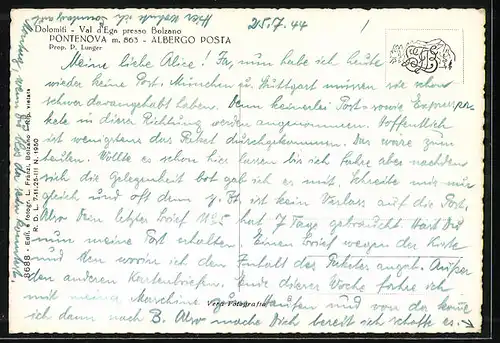 25.7.44
Dolomiti - Val d'Ega presso Bolzano
PONTENOVA m. 863 - ALBERGO POSTA
Prop. P. Lunger
Meine liebe Alice! Ja, nun habe ich heute
wieder keine Post. München u. Stuttgart müssen wie schon
schwer darangehabt haben. Denn keinerlei Post sowie Expresspa-
kete in dieser Richtung werden angenommen. Hoffentlich
ist wenigstens das Paket durchgekommen. Das wäre zum
heulen. Wollte es schon hier lassen bis ich fahre aber nachdem
sich die Gelegenheit bot gab ich es mit. Schreibe mir nur
gleich und oft denn z. Zt. ist kein Verlass auf die Post.
Also Dein letzter Brief N 25 hat 7 Tage gebraucht. Hast Du
nun meine Post erhalten. Einen Brief wegen der Kiste
und den worin ich den Inhalt des Paketes angab. Außer
den anderen Kartenbriefen. Ende dieser Woche fahre ich
mit meiner Maschine zu und von da komme
ich dann nach B. Also mache Dich bereit ich schaffe es.
Vera Fotografia
8688 - Ediz. e fotogr. Fränzl, Bolzano - Rip. vietata
R. D. L. 7-11-25-III N. 1950